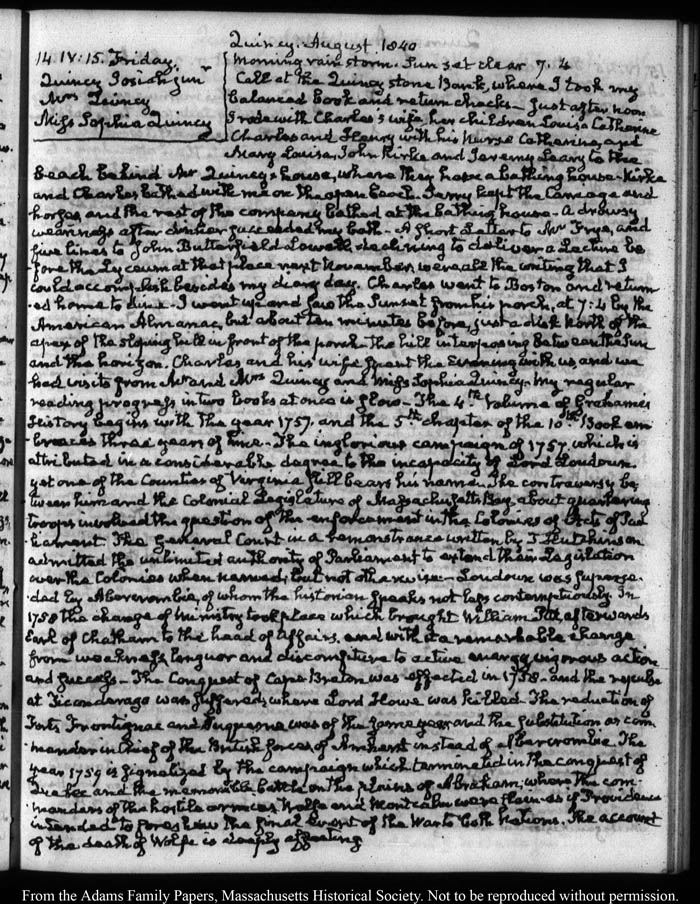 Quincy. August 1840
14. IV:15. Friday.
Quincy Josiah junr
Mrs Quincy
Miss Sophia Quincy
Morning rain storm. Sun set clear 7. 4
Call at the Quincy stone Bank, where I took my
balanced book and return checks — Just after noon
I rode with Charles's wife, her children Louisa Catherine
Charles and Henry with his Nurse Catherine, and
Mary Louisa, John Kirke and Jeremy Leary to the
beach behind Mr Quincy's house, where they have a bathing house. Kirke
and Charles bathed with me on the open beach. Jerry kept the Carriage and
horses, and the rest of the company bathed at the bathing house — A drowsy
weariness after dinner succeeded my bath — A short Letter to Mr Frye, and
five lines to John Butterfield Lowell, declining to deliver a Lecture be
fore the Lyceum at that place next November, were all the writing that I
could accomplish besides my diary day. Charles went to Boston and return
ed home to dine — I went up and saw the Sunset from his porch, at 7:4 by the
American Almanac, but about ten minutes before, just a disk North of the
apex of the sloping hill in front of the porch. The hill interposing between the Sun
and the horizon. Charles and his wife spent the Evening with us, and we
had visits from Mr and Mrs Quincy and Miss Sophia Quincy. My regular
reading progress in two books at once is slow — The 4th Volume of Grahame's
History begins with the year 1757. and the 5th chapter of the 10th Book em
braces three years of time — The inglorious campaign of 1757 which is
attributed in a considerable degree to the incapacity of Lord Loudoun.
yet one of the Counties of Virginia still bears his name. The controversy be
tween him and the Colonial Legislature of Massachusetts Bay, about quartering
troops involved the question of the enforcement in the Colonies of Acts of Par
liament. The General Court in a remonstrance written by T. Hutchinson
admitted the unlimited authority of Parliament to extend their Legislation
over the Colonies when named, but not otherwise — Loudoun was superse-
ded by Abercrombie, of whom the historian speaks not less contemptuously. In
1758 the change of Ministry took place which brought William Pitt, afterwards
Earl of Chatham to the head of Affairs, and with it a remarkable change
from weakness, languor and discomfiture to active energy, vigorous action
and success — The Conquest of Cape Breton was effected in 1758 — and the repulse
at Ticonderago was suffered, where Lord Howe was killed. The reduction of
Forts Frontignac and Duquesne was of the same year and the substitution as com
mander in chief of the British forces of Amherst instead of Abercrombie. The
year 1759 is signalized by the campaign which terminated in the conquest of
Quebec and the memorable battle on the plains of Abraham, where the com-
manders of the hostile armies Wolfe and Montcalm were slain — as if Providence
intended to foreshew the final Event of the War to both Nations. The account
of the death of Wolfe is deeply affecting
From the Adams Family Papers, Massachusetts Historical Society. Not to be reproduced without permission.